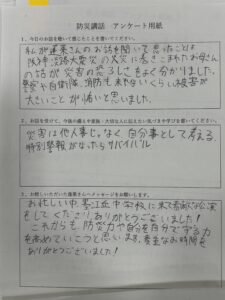 防災講話 アンケート用紙
1. 今日のお話を聴いて感じたことを書いてください。
私が蓬莱さんのお話を聞いて思ったことは
阪神淡路大震災の大火に巻きこまれたお母さん
の話が災害の恐ろしさをよく分かりました。
警察や自衛隊、消防も来れないくらい被害が
大きいことが怖いと思いました。
2. お話を受けて、今後の備えや家族・大切な人に伝えたい気づきや学びを書いてください。
災害は他人事じゃなく自分事として考える。
特別警報がなったらサバイバル
3. お忙しいいただいた蓬莱さんへメッセージをお願いします。
お忙しい中、 中学校に来て貴重な公演
をしてくださりありがとうございました!
これからも、防災力や自分を自分で守る力
を高めていこうと思います。貴重なお時間を
ありがとうございました!